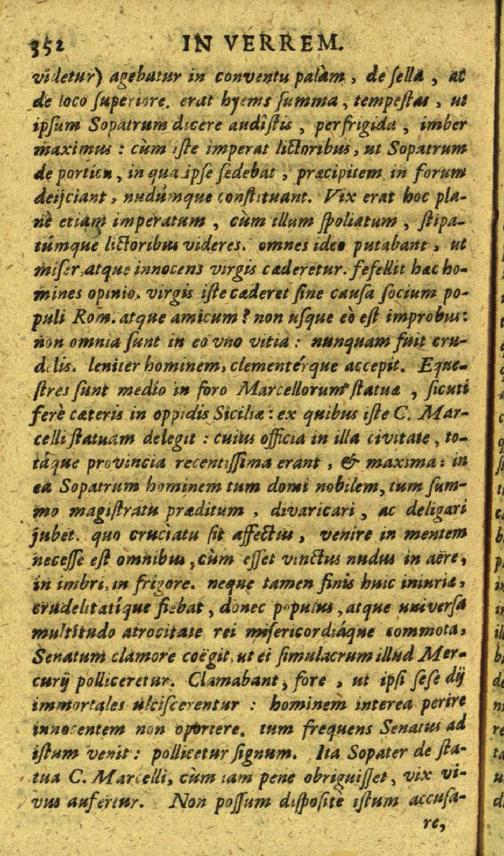 352 IN VERREM.
videtur) agebatur in conventu palàm, de sella, ac
de loco superiore. erat hyems summa, tempestas, ut
ipsum Sopatrum dicere audistis, perfrigida, imber
maximus: cùm iste imperat lictoribus, ut Sopatrum
de porticu, in qua ipse sedebat, præcipitem in forum
deijciant, nudúmque constituant. Vix erat hoc pla-
nè etiam imperatum, cùm illum spoliatum, stipa-
túmque lictoribus videres. omnes ideo putabant, ut
miser, atque innocens virgis cæderetur. fefellit hæc ho-
mines opinio. virgis iste cæderet sine causa socium po-
puli Rom. atque amicum? non usque eò est improbus:
non omnia sunt in eo vno vitia: nunquam fuit cru-
delis. leniter hominem, clementérque accepit. Eque-
stres sunt medio in foro Marcellorum statuæ, sicuti
ferè cæteris in oppidis Siciliæ: ex quibus iste C. Mar-
celli statuam delegit: cuius officia in illa civitate, to-
táque provincia recentissima erant, & maxima: in
ea Sopatrum hominem tum domi nobilem, tum sum-
mo magistratu præditum, divaricari, ac deligari
jubet. quo cruciatu sit affectus, venire in mentem
necesse est omnibus, cùm esset vinctus nudus in aëre,
in imbri, in frigore. neque tamen finis huic iniuriæ,
crudelitatíque fiebat, donec populus, atque universa
multitudo atrocitate rei misericordiáque commota,
Senatum clamore coëgit, ut ei simulacrum illud Mer-
curij polliceretur. Clamabant, fore, ut ipsi sese dij
immortales ulciscerentur: hominem interea perire
innocentem non oportere. tum frequens Senatus ad
istum venit: pollicetur signum. Ita Sopater de sta-
tua C. Marcelli, cùm iam pene obriguisset, vix vi-
vus aufertur. Non possum dispositè istum accusa-
re,